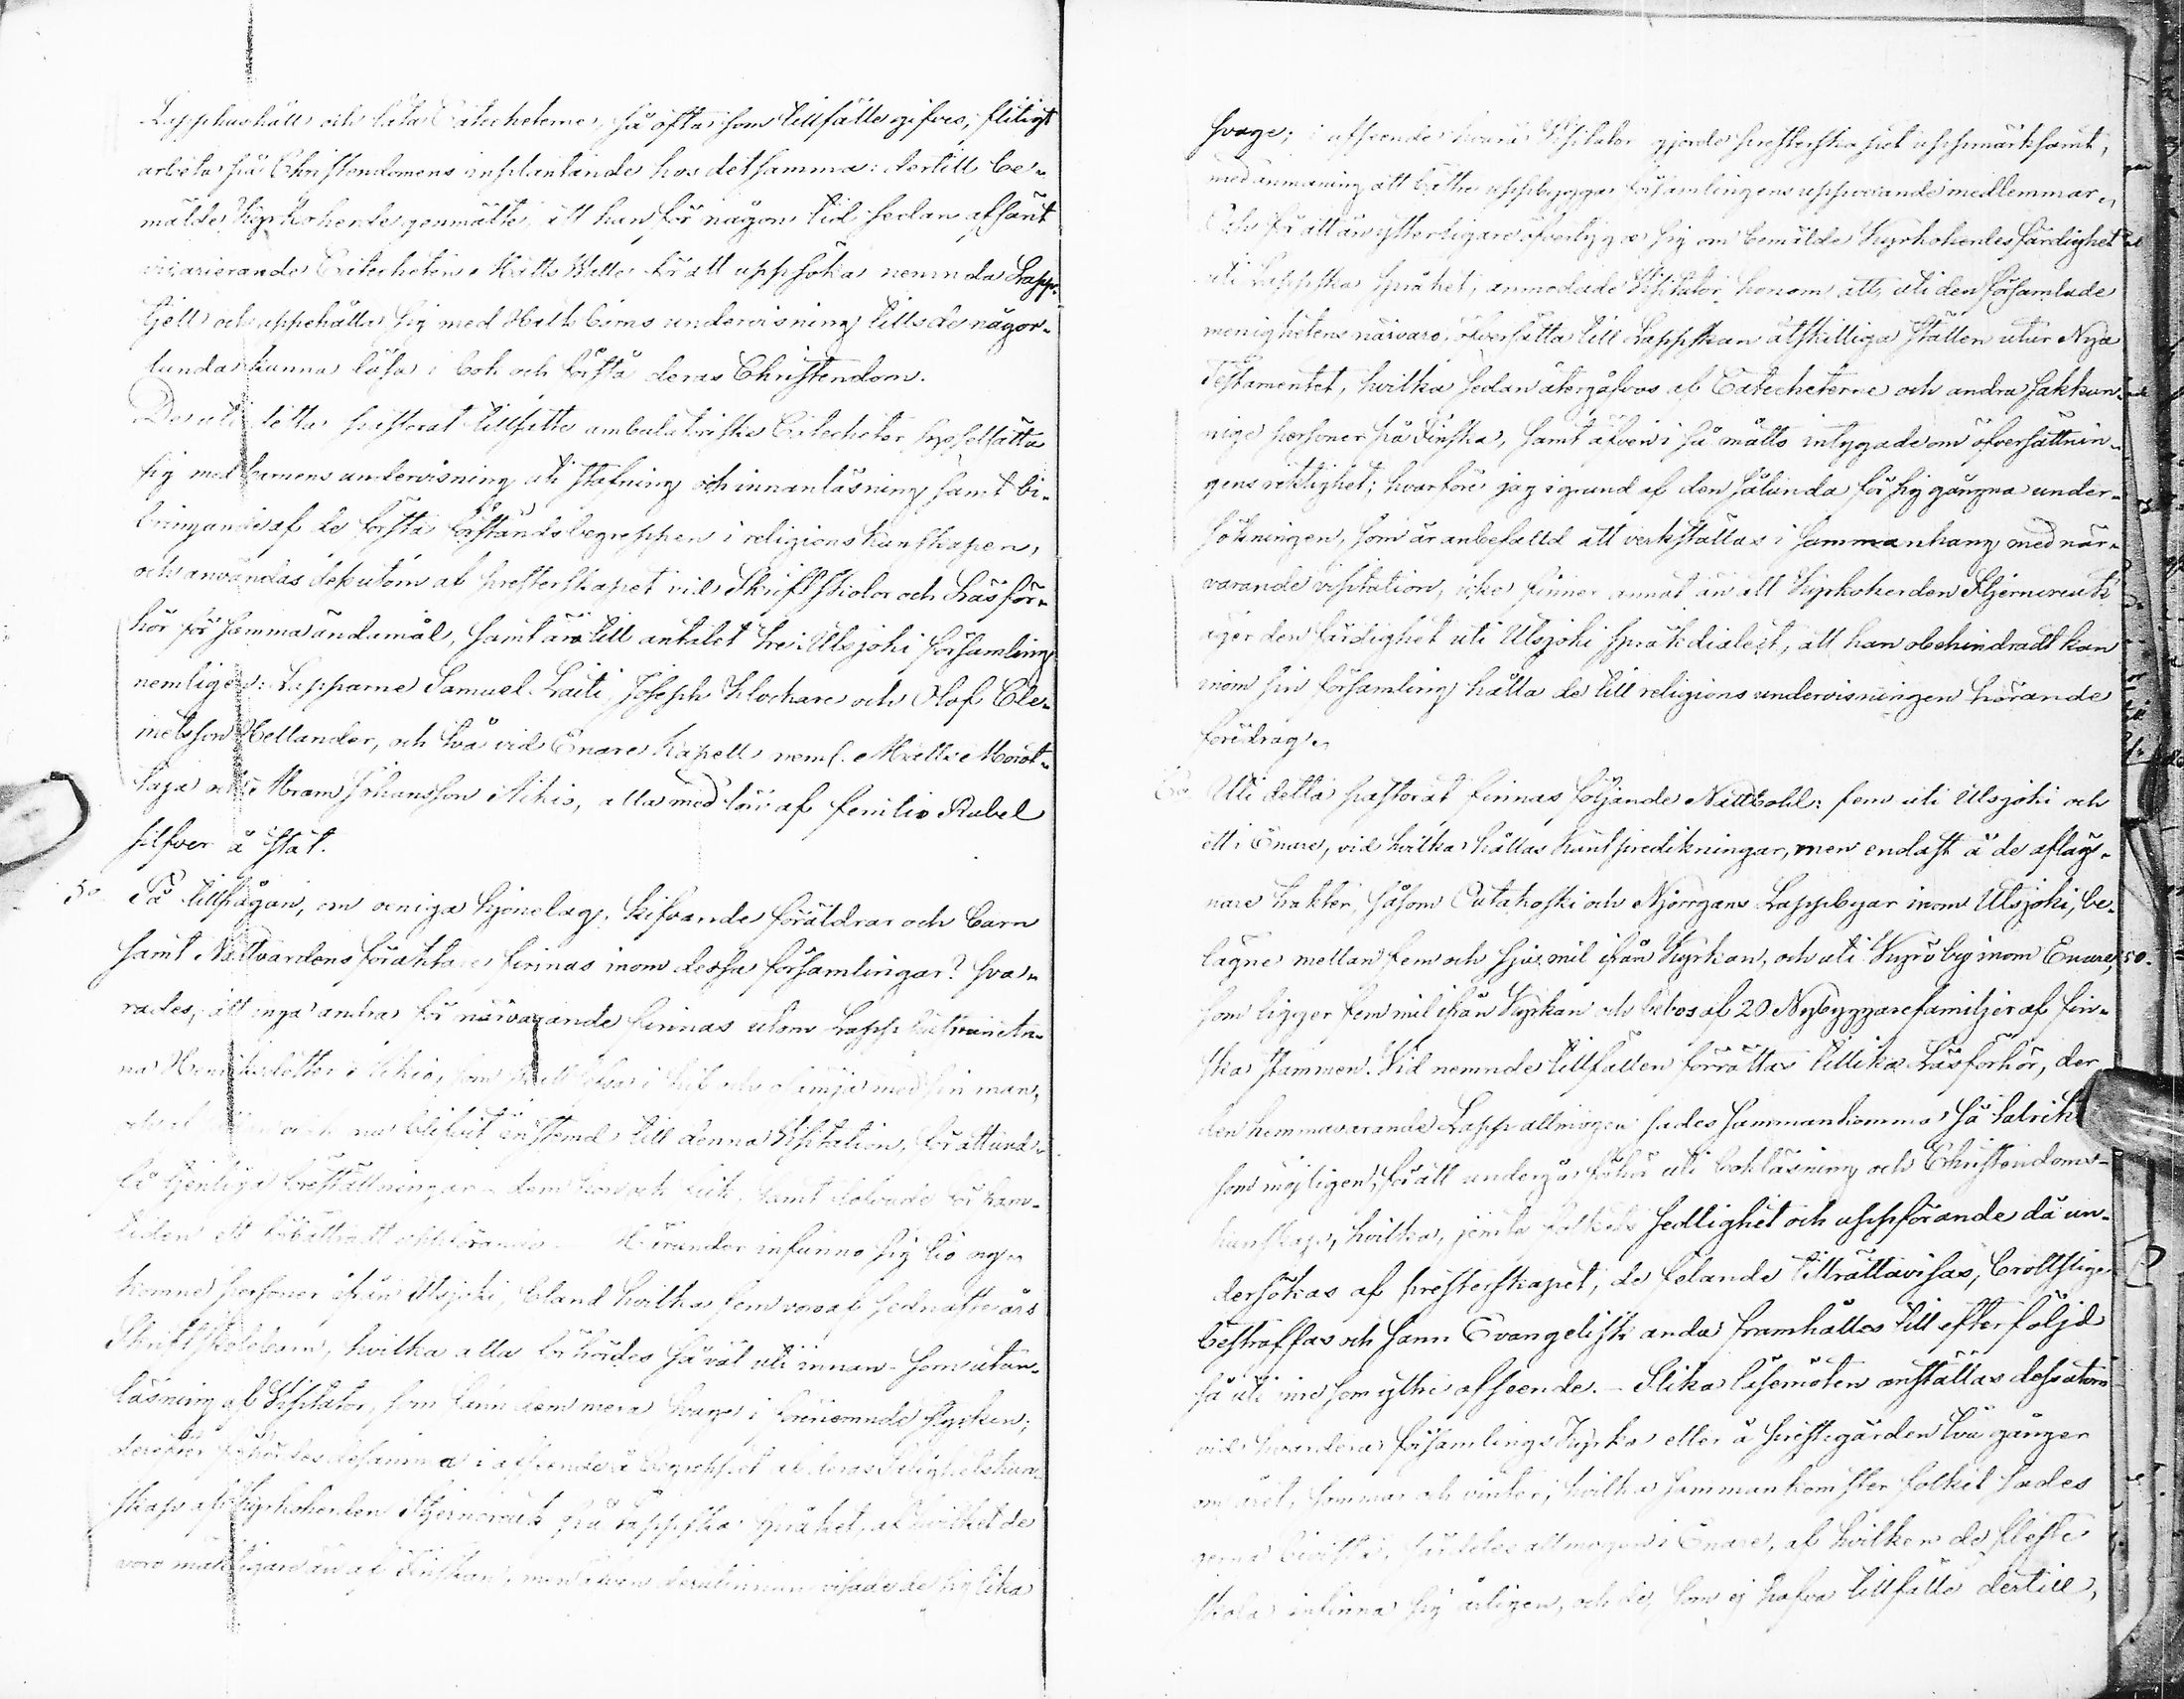 Lapphushåll och låta Catecheterne, så ofta som tillfälle gifves, flitigt
arbeta på Christendomens inplantande hos detsamma: dertill be-
mälde Kyrkoherde genmälte, att han för någon tid sedan afsänt
vicarierande Catecheten Matts Valle för att uppsöka nemnda Lapp-
tjell och uppehålla sig med Matts barns undervisning tills de någor-
lunda kunna läsa i bok och förstå deras Christendom.
De uti detta pastorat tillsatte ambulatoriske Catecheter sysselsätta
sig med barnens undervisning uti stafning och innanläsning samt bi-
bringande af de första förståndsbegreppen i religions kunskapen,
och användas dessutom af presterskapet vid Skriftskolor och Läsför-
hör för samma ändamål, samt äro till antalet tre i Utsjoki församling
nemligen: Lapparne Samuel Laiti, Joseph Klockare och Olof Cle-
metsson Hellander, och två vid Enare kapell neml. Matts Morot-
taja och Abram Johansson Aikio, alla med lön af femtio Rubel
silfver å stat.
5o På tillfrågan, om oeniga hjonelag, kifvande föräldrar och barn
samt Nattvardens föraktare finnas inom dessa församlingar? sva-
rades, att inga andra för närvarande finnas utom Lapp
na Henriksdotter Aikio, som lefva i kif och osämja med sin man,
och blifvit instemd till denna Visitation, för att und-
få tjenliga föreställningar dem samt lofvade för fram-
tiden ett förbättradt uppförande. Härunder infunno sig tio ny-
komne personer ifrån Utsjoki, bland hvilka fem voro af sednaste års
Skriftskolebarn, hvilka alla förhördes så väl uti innan- som utan-
läsning af Visitator, som fann dem mera svage i förenemnde stycken;
derefter förhördes desamma i afseende å begreppet af deras Salighetskun-
skap af Kyrkoherden Stjerncreutz på Lappska språket, af hvilket de
voro mäktigare än af Finskan, men äfven derutinnan visade de sig lika
svage; i afseende hvarå Visitator gjorde presterskapet uppmärksamt,
med anmaning att bättre uppbygga församlingens uppvexande medlemmar.
Och för att än ytterligare öfvertyga sig om bemälde Kyrkoherdes färdighet
uti Lappska språket, anmodade Visitator honom att, uti den församlade
menighetens närvaro, öfversätta till Lappskan åtskilliga ställen utur Nya
Testamentet, hvilka sedan återgåfvos af Catecheterne och andra sakkun-
nige personer på Finska, samt äfven i så måtto intygade om öfversättnin-
gens riktighet; hvarföre jag i grund af den sålunda för sig gångna under-
sökningen, som är anbefalld att verkställas i sammanhang med när-
varande visitation, icke finner annat än att Kyrkoherden Stjerncreutz
äger den färdighet uti Utsjoki språkdialect, att han obehindradt kan
inom sin församling hålla de till religions undervisningen hörande
föredrag.
6o Uti detta pastorat finnas följande Nattbohl: fem uti Utsjoki och
ett i Enare, vid hvilka hållas hustpredikningar, men endast å de aflägs-
nare trakter, såsom Outakoski och Njorrgans Lappbyar inom Utsjoki, be-
lägne mellan fem och sju mil ifrån Kyrkan, och uti Kyrö by inom Enare,
som ligger fem mil ifrån Kyrkan och bebos af 20 Nybyggarefamiljer af Fin-
ska stammen. Vid nemnde tillfällen förrättas tillika Läsförhör, der
den hemmavarande Lappallmogen sades sammankomma så talrikt
som möjligen, för att undergå förhör uti bokläsning och Christendoms-
kunskap, hvilka, jemte folkets sedlighet och uppförande då un-
dersökas af presterskapet, de felande tillrättavisas, brottslige
bestraffas och sann Evangelisk anda framhålles till efterföljd
så uti inre som yttre afseende. - Slika läsemöten anställas dessutom
vid hvardera församlings Kyrka eller å prestegården två gånger
om året, sommar och vinter; hvilka sammankomster folket sades
gerna bivista, särdeles allmogen i Enare, af hvilken de fleste
skola infinna sig årligen, och de, som ej hafva tillfälle dertill,